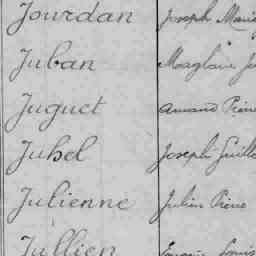 Jourdan Joseph Marie
Juban Magloire
Juguet Amand Pierre
Juhel Joseph Guillo
Julienne Julien Pierre
Jullien Louis